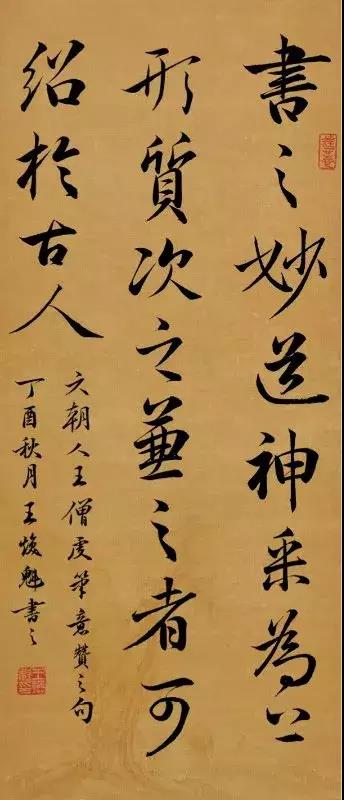 書之妙道神采為上
形質次之兼之者可
紹於古人
六朝人王僧虔筆意贊之句
丁酉秋月王焕魁書之